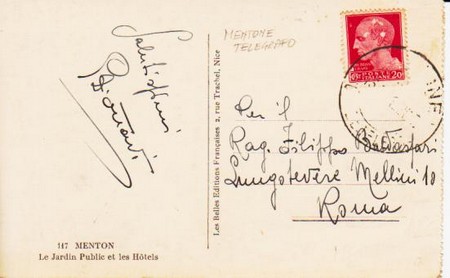 Salutissimi
MENTONE
TELEGRAFO
POSTE
ITALIANE
20
Per il
Rag. Filippo Baldassari
Lungotevere Mellini 10
Roma
Les Belles Editions Françaises 2, rue Trachel, Nice
117 MENTON
Le Jardin Public et les Hôtels